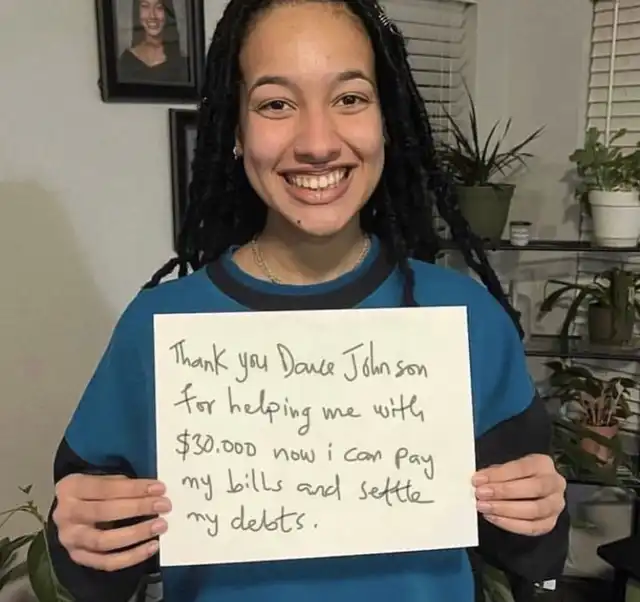 Thank you Dance Johnson
for helping me with
$30.000 now i can pay
my bills and settle
my debts.